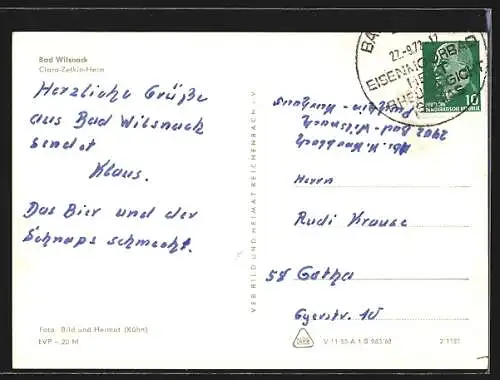 Bad Wilsnack
Clara-Zetkin-Heim
Herzliche Grüße
aus Bad Wilsnack
sendet
Klaus.
Das Bier und der
Schnaps schmeckt.
Foto: Bild und Heimat (Kühn)
EVP – 20 M
VEB BILD UND HEIMAT REICHENBACH i. V.
22.-9.72-17
EISENMOORBAD
10
DEUTSCHE DEMOKRATISCHE REPUBLIK
2902 Bad-Wilsnack
Herrn
Rudi Krause
58 Gotha
Gyerstr. 10
V 11-50 A 1